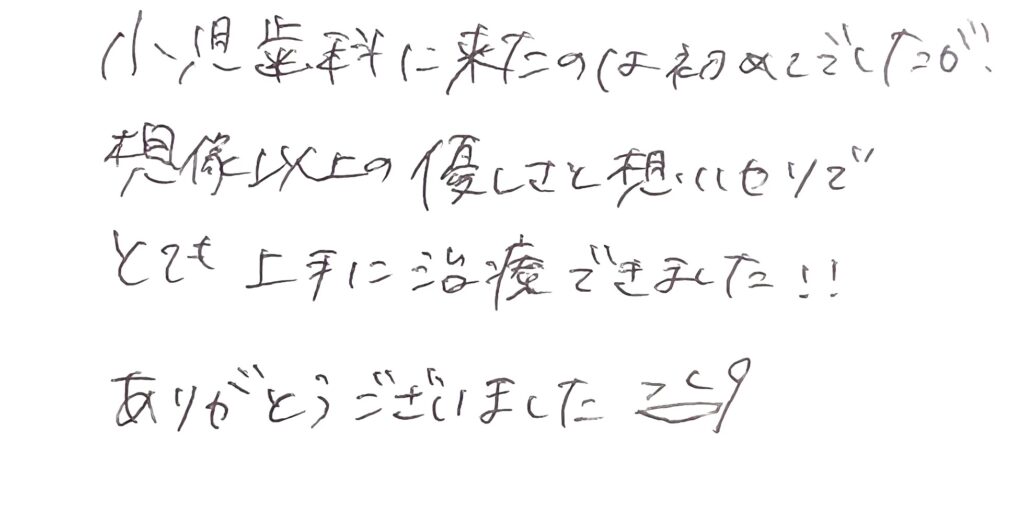 小児歯科に来たのは初めてでしたが、
想像以上の優しさと想いやりで
とても上手に治療できました!!
ありがとうございました